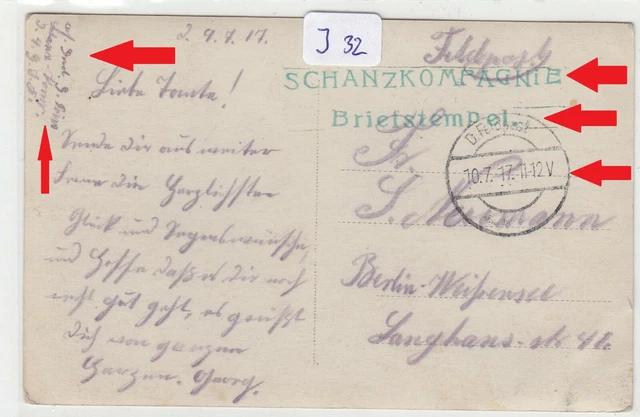 J 32
2. 9. 7. 17.
Feldpost
SCHANZKOMPAGNIE
Briefstempel.
Liebe Tante!
D. Feldpost
10.7.17. 11-12V
Sende dir aus weiter
Ferne die Herzlichsten
Glück und Segenswünsche,
und hoffe daß es dir noch
recht gut geht, es grüßt
dich von ganzem
Herzen. Georg.
Fr.
S. Neumann
Berlin-Weißensee
Langhans-str